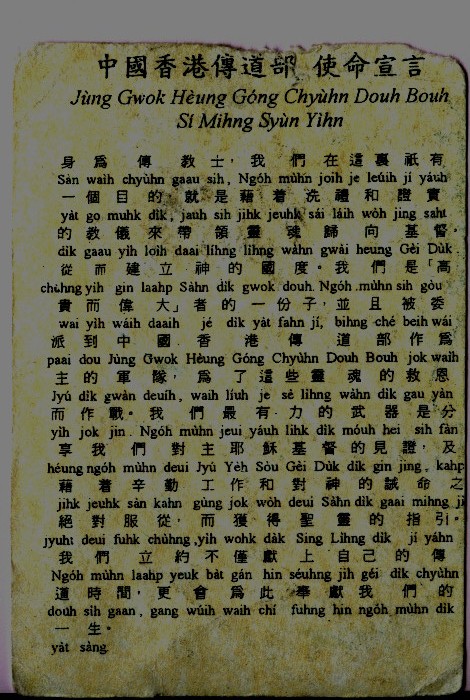 中國香港傳道部 使命宣言
Jùng Gwok Hèung Góng Chyùhn Douh Bouh
Sí Mihng Syùn Yìhn
身為傳教士，我們在這裏祇有
Sàn waih chyùhn gaau sih, Ngóh mùhn joih je leúih jí yáuh
一個目的就是藉着洗禮和證實
yàt go muhk dìk, jauh sih jihk jeuhk sái láih wòh jing saht
的教儀來帶領靈魂歸向基督。
dìk gaau yìh loìh daai líhng lìhng wàhn gwài heung Gèi Dùk.
從而建立神的國度。我們是「高
chùhng yìh gin laahp Sàhn dìk gwok douh. Ngóh mùhn sih gòu
貴而偉大」者的一份子，並且被委
wai yìh wáih daaih jé dìk yàt fahn jí, bihng ché beih wái
派到中國香港傳道部作為
paai dou Jùng Gwok Hèung Góng Chyùhn Douh Bouh jok waih
主的軍隊，為了這些靈魂的救恩
Jyú dìk gwàn deuíh, waih líuh je sè lìhng wàhn dìk gau yàn
而作戰。我們最有力的武器是分
yìh jok jin. Ngóh mùhn jeui yáuh lihk dìk móuh hei sih fàn
享我們對主耶穌基督的見證，及
héung ngóh mùhn deui Jyú Yèh Sòu Gèi Dùk dìk gin jing, kahp
藉着辛勤工作和對神的誡命之
jihk jeuhk sàn kahn gùng jok wòh deui Sàhn dìk gaai mihng jì
絕對服從，而獲得聖靈的指引。
jyuht deui fuhk chùhng, yìh wohk dàk Sing Lìhng dìk jí yáhn
我們立約不僅獻上自己的傳
Ngóh mùhn laahp yeuk bàt gán hin séuhng jih géi dìk chyùhn
道時間，更會為此奉獻我們的
douh sìh gaan, gang wúih waih chí fuhng hin ngóh mùhn dìk
一生。
yàt sàng